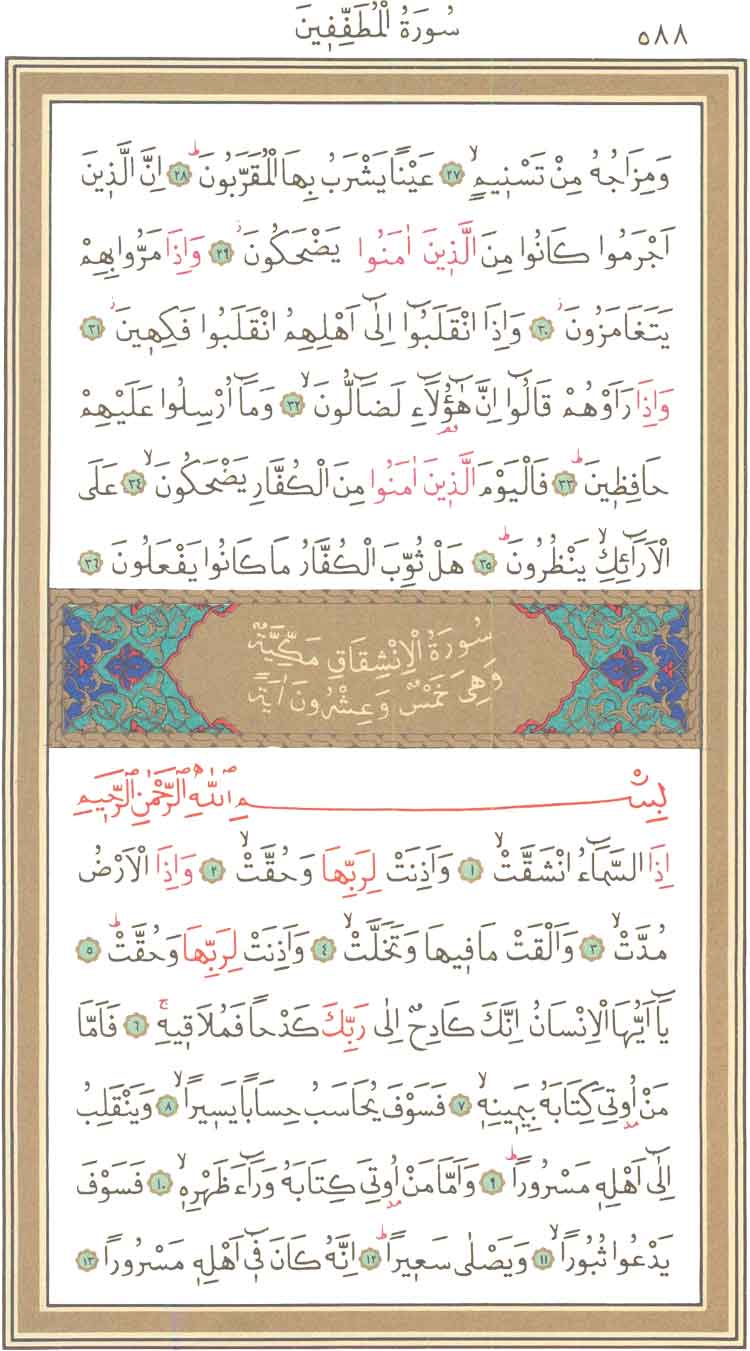 سُورَةُ الْمُطَفِّفِينَ ٥٨٨
وَمِزَاجُهُ مِنْ تَسْنِيمٍۙ ٢٧ عَيْنًا يَشْرَبُ بِهَا الْمُقَرَّبُونَۜ ٢٨ اِنَّ الَّذِينَ
اَجْرَمُوا كَانُوا مِنَ الَّذِينَ اٰمَنُوا يَضْحَكُونَۘ ٢٩ وَاِذَا مَرُّوا بِهِمْ
يَتَغَامَزُونَۘ ٣٠ وَاِذَا انْقَلَبُٓوا اِلٰٓى اَهْلِهِمُ انْقَلَبُوا فَكِهِينَۘ ٣١
وَاِذَا رَاَوْهُمْ قَالُٓوا اِنَّ هٰٓؤُ۬لَٓاءِ لَضَٓالُّونَۙ ٣٢ وَمَٓا اُرْسِلُوا عَلَيْهِمْ
حَافِظِينَۜ ٣٣ فَالْيَوْمَ الَّذِينَ اٰمَنُوا مِنَ الْكُفَّارِ يَضْحَكُونَۙ ٣٤ عَلَى
الْاَرَٓائِكِۙ يَنْظُرُونَۜ ٣٥ هَلْ ثُوِّبَ الْكُفَّارُ مَا كَانُوا يَفْعَلُونَ ٣٦
سُورَةُ الْاِنْشِقَاقِ مَكِّيَّةٌ
وَهِىَ خَمْسٌ وَعِشْرُونَ اٰيَةً
بِسْمِ اللّٰهِ الرَّحْمٰنِ الرَّحِيمِ
اِذَا السَّمَٓاءُ انْشَقَّتْۙ ١ وَاَذِنَتْ لِرَبِّهَا وَحُقَّتْۙ ٢ وَاِذَا الْاَرْضُ
مُدَّتْۙ ٣ وَاَلْقَتْ مَا فِيهَا وَتَخَلَّتْۙ ٤ وَاَذِنَتْ لِرَبِّهَا وَحُقَّتْۜ ٥
يَٓا اَيُّهَا الْاِنْسَانُ اِنَّكَ كَادِحٌ اِلٰى رَبِّكَ كَدْحًا فَمُلَاقِيهِۚ ٦ فَاَمَّا
مَنْ اُو۫تِىَ كِتَابَهُ بِيَمِينِهِۙ ٧ فَسَوْفَ يُحَاسَبُ حِسَابًا يَسِيرًاۙ ٨ وَيَنْقَلِبُ
اِلٰٓى اَهْلِهِ مَسْرُورًاۜ ٩ وَاَمَّا مَنْ اُو۫تِىَ كِتَابَهُ وَرَٓاءَ ظَهْرِهِۙ ١٠ فَسَوْفَ
يَدْعُوا ثُبُورًاۙ ١١ وَيَصْلٰى سَعِيرًاۜ ١٢ اِنَّهُ كَانَ فِٓى اَهْلِهِ مَسْرُورًا ١٣